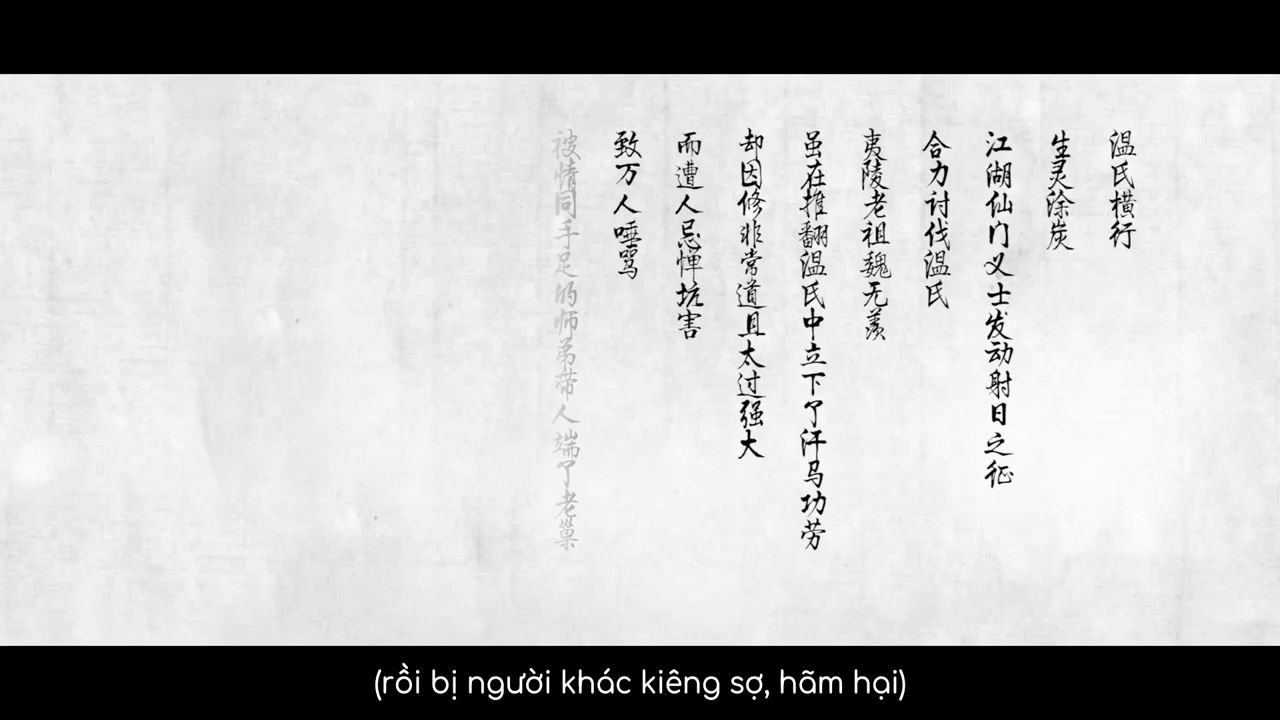 温氏横行
生灵涂炭
江湖仙门义士发动射日之征
合力讨伐温氏
夷陵老祖魏无羡
虽在推翻温氏中立下了汗马功劳
却因修非常道且太过强大
而遭人忌惮坑害
致万人唾骂
被情同手足的师弟带人端了老巢
(rồi bị người khác kiêng sợ, hãm hại)